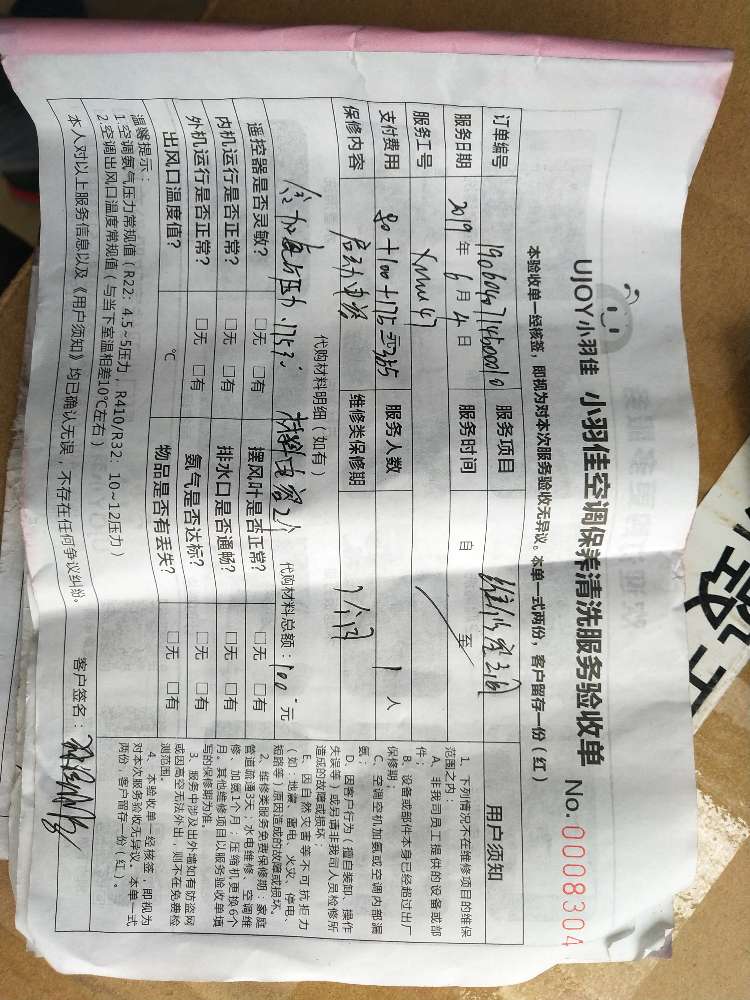 UJOY小羽佳 小羽佳空调保养清洗服务验收单 No. 0008304
本验收单一经核签，即视为对本次服务验收无异议。本单一式两份，客户留存一份（红）
订单编号 服务项目
服务日期 2019年6月4日 服务时间 自 至
服务工号 Xmw47 服务人数 1人
支付费用 80+100+175=355
保修内容 启动电容 维修类保修期 1个月
代购材料明细（如有）
材料电容2个 代购材料总额：100元
遥控器是否灵敏？ □无 □有 摆风叶是否正常？ □无 □有
内机运行是否正常？ □无 □有 排水口是否通畅？ □无 □有
外机运行是否正常？ □无 □有 氨气是否达标？ □无 □有
出风口温度值？ ℃ 物品是否有丢失？ □无 □有
温馨提示：
1.空调氨气压力常规值（R22：4.5~5压力，R410/R32：10~12压力）
2.空调出风口温度常规值（与当下室温相差10℃左右）
本人对以上服务信息以及《用户须知》均已确认无误，不存在任何争议纠纷。 客户签名：
用户须知
1、下列情况不在维修项目的维保
范围之内：
A、非我司员工提供的设备或部
件；
B、设备或部件本身已经超过出厂
保修期；
C、空调空机加氨或空调内部漏
氨；
D、因客户行为（擅自装卸、操作
失误等）或另请非我司人员检修所
造成的故障或损坏；
E、因自然灾害等不可抗拒力
（如：地震、雷电、火灾、停电、
短路等）原因造成的故障或损坏。
2、维修类服务免费保修期：家庭
管道疏通3天；水电维修、空调维
修、加氨1个月；压缩机更换6个
月。其他维修项目以服务验收单填
写的保修期为准。
3、服务中涉及出外墙如有防盗网
或因高空无法外出，则不在免费检
测范围。
4、本验收单一经核签，即视为
对本次服务验收无异议。本单一式
两份，客户留存一份（红）。